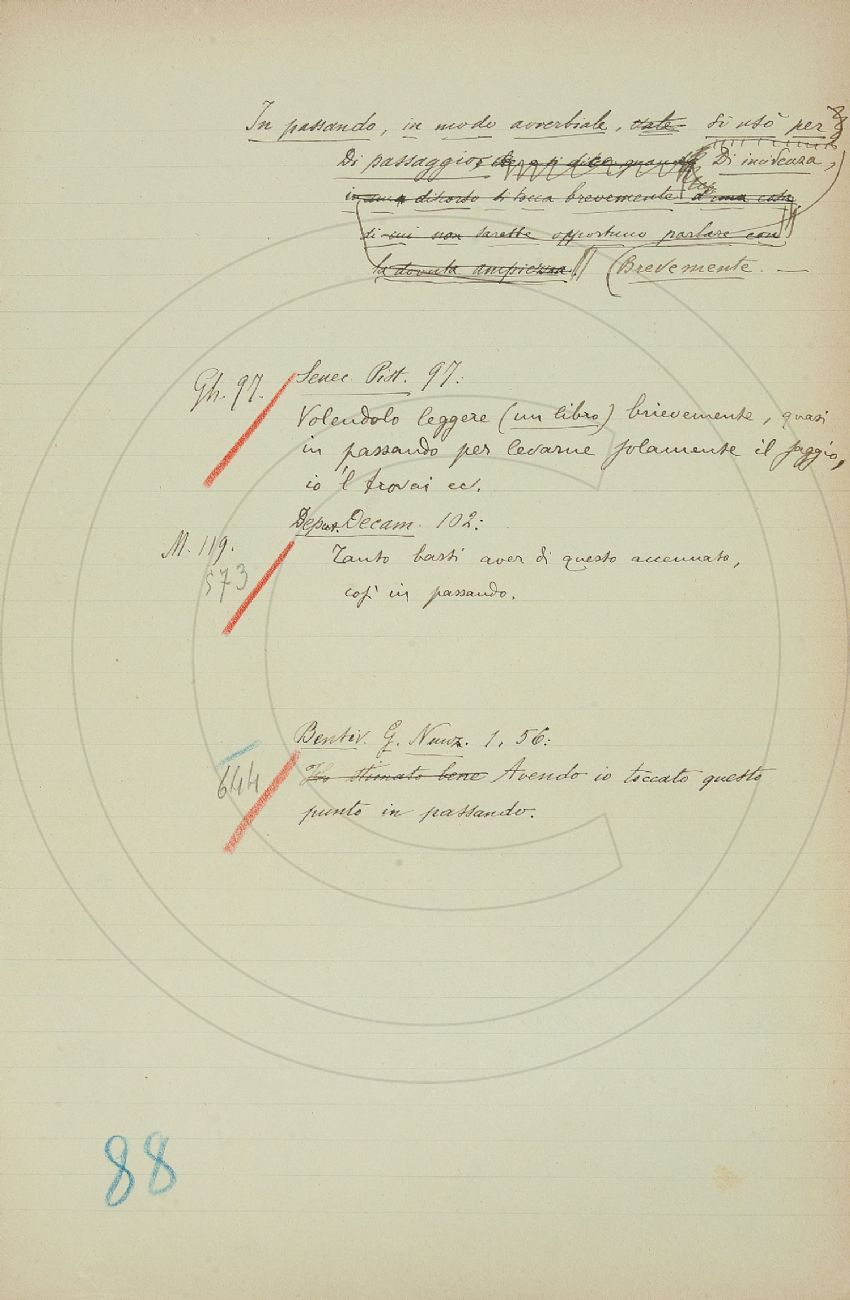 In passando, in modo avverbiale, vale si usò per
Di passaggio, e si dice quando Di incidenza,
in un discorso si tocca brevemente d'una cosa
di cui non sarebbe opportuno parlare con
la dovuta ampiezza. (Brevemente. —
Gh. 97. Senec. Pist. 97:
Volendolo leggere (un libro) brievemente, quasi
in passando per levarne solamente il saggio,
io 'l trovai ec.
Deput. Decam. 102:
M. 119. Tanto basti aver di questo accennato,
573 così in passando.
Bentiv. G. Nunz. 1, 56:
644 Ho stimato bene Avendo io toccato questo
punto in passando.
88